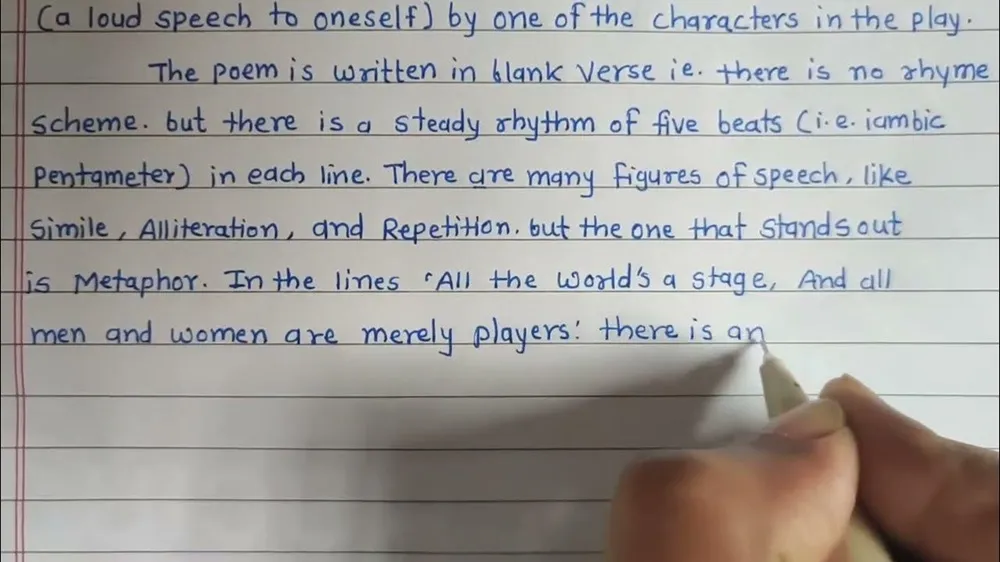 (a loud speech to oneself) by one of the characters in the play.
The poem is written in blank verse ie. there is no rhyme
scheme. but there is a steady rhythm of five beats (i.e. iambic
Pentameter) in each line. There are many figures of speech, like
Simile, Alliteration, and Repetition. but the one that stands out
is Metaphor. In the lines 'All the world's a stage, And all
men and women are merely players.' there is an